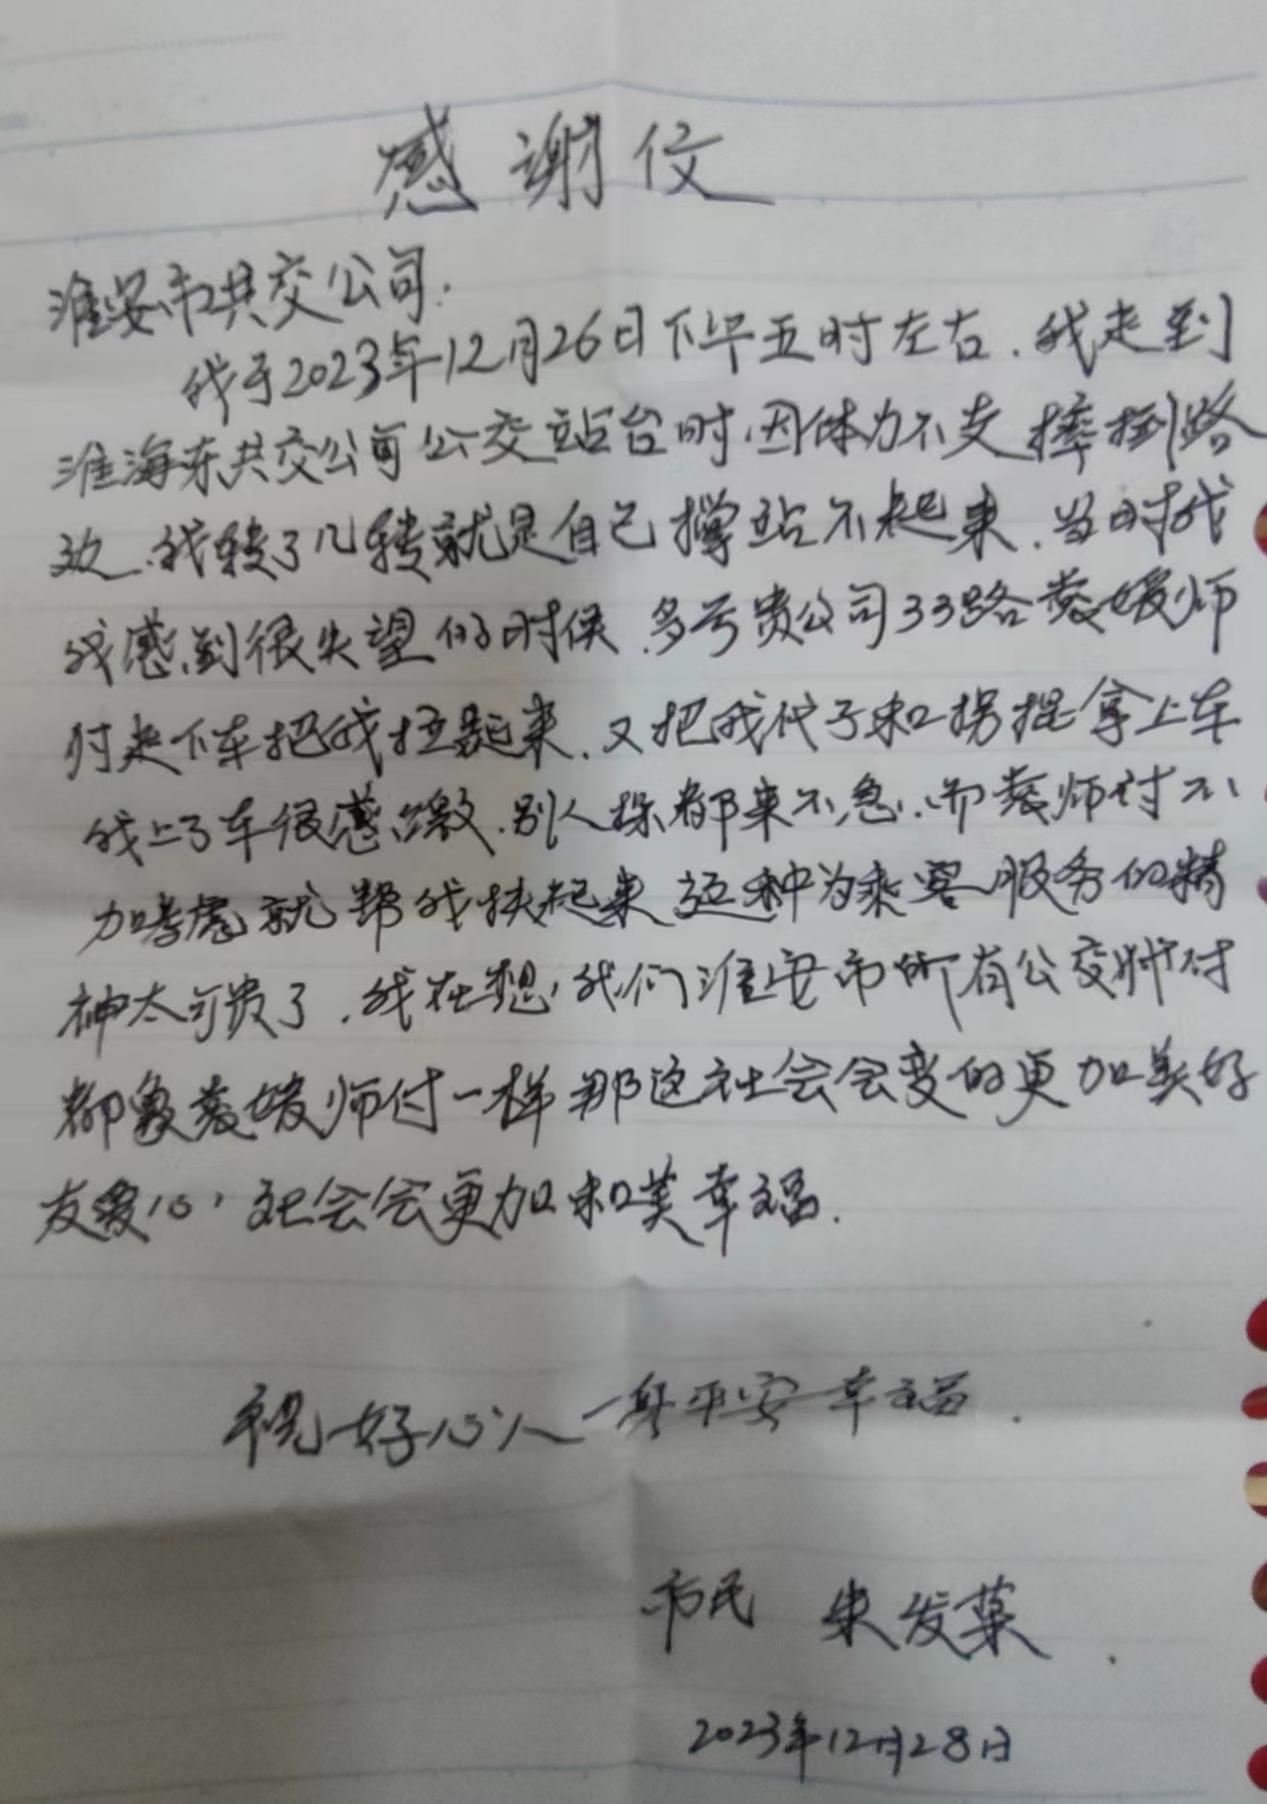 感谢信
淮安市共交公司.
我于2023年12月26日下午五时左右.我走到
淮海东共交公司公交站台时.因体力不支摔倒路
边.我转了几转就是自己撑站不起来.当时我
我感到很失望的时候.多亏贵公司33路 媛师
付走下车把我拉起来.又把我代子和拐棍拿上车
我上了车很感激.别人躲都来不急.而 师付不
加考虑就帮我扶起来 这种为乘客服务的精
神太可贵了.我在想,我们淮安市所有公交师付
都象 媛师付一样那这社会会变的更加美好
友爱心,社会会更加和美幸福.
祝好心人一身平安幸福.
市民 朱发
2023年12月28日